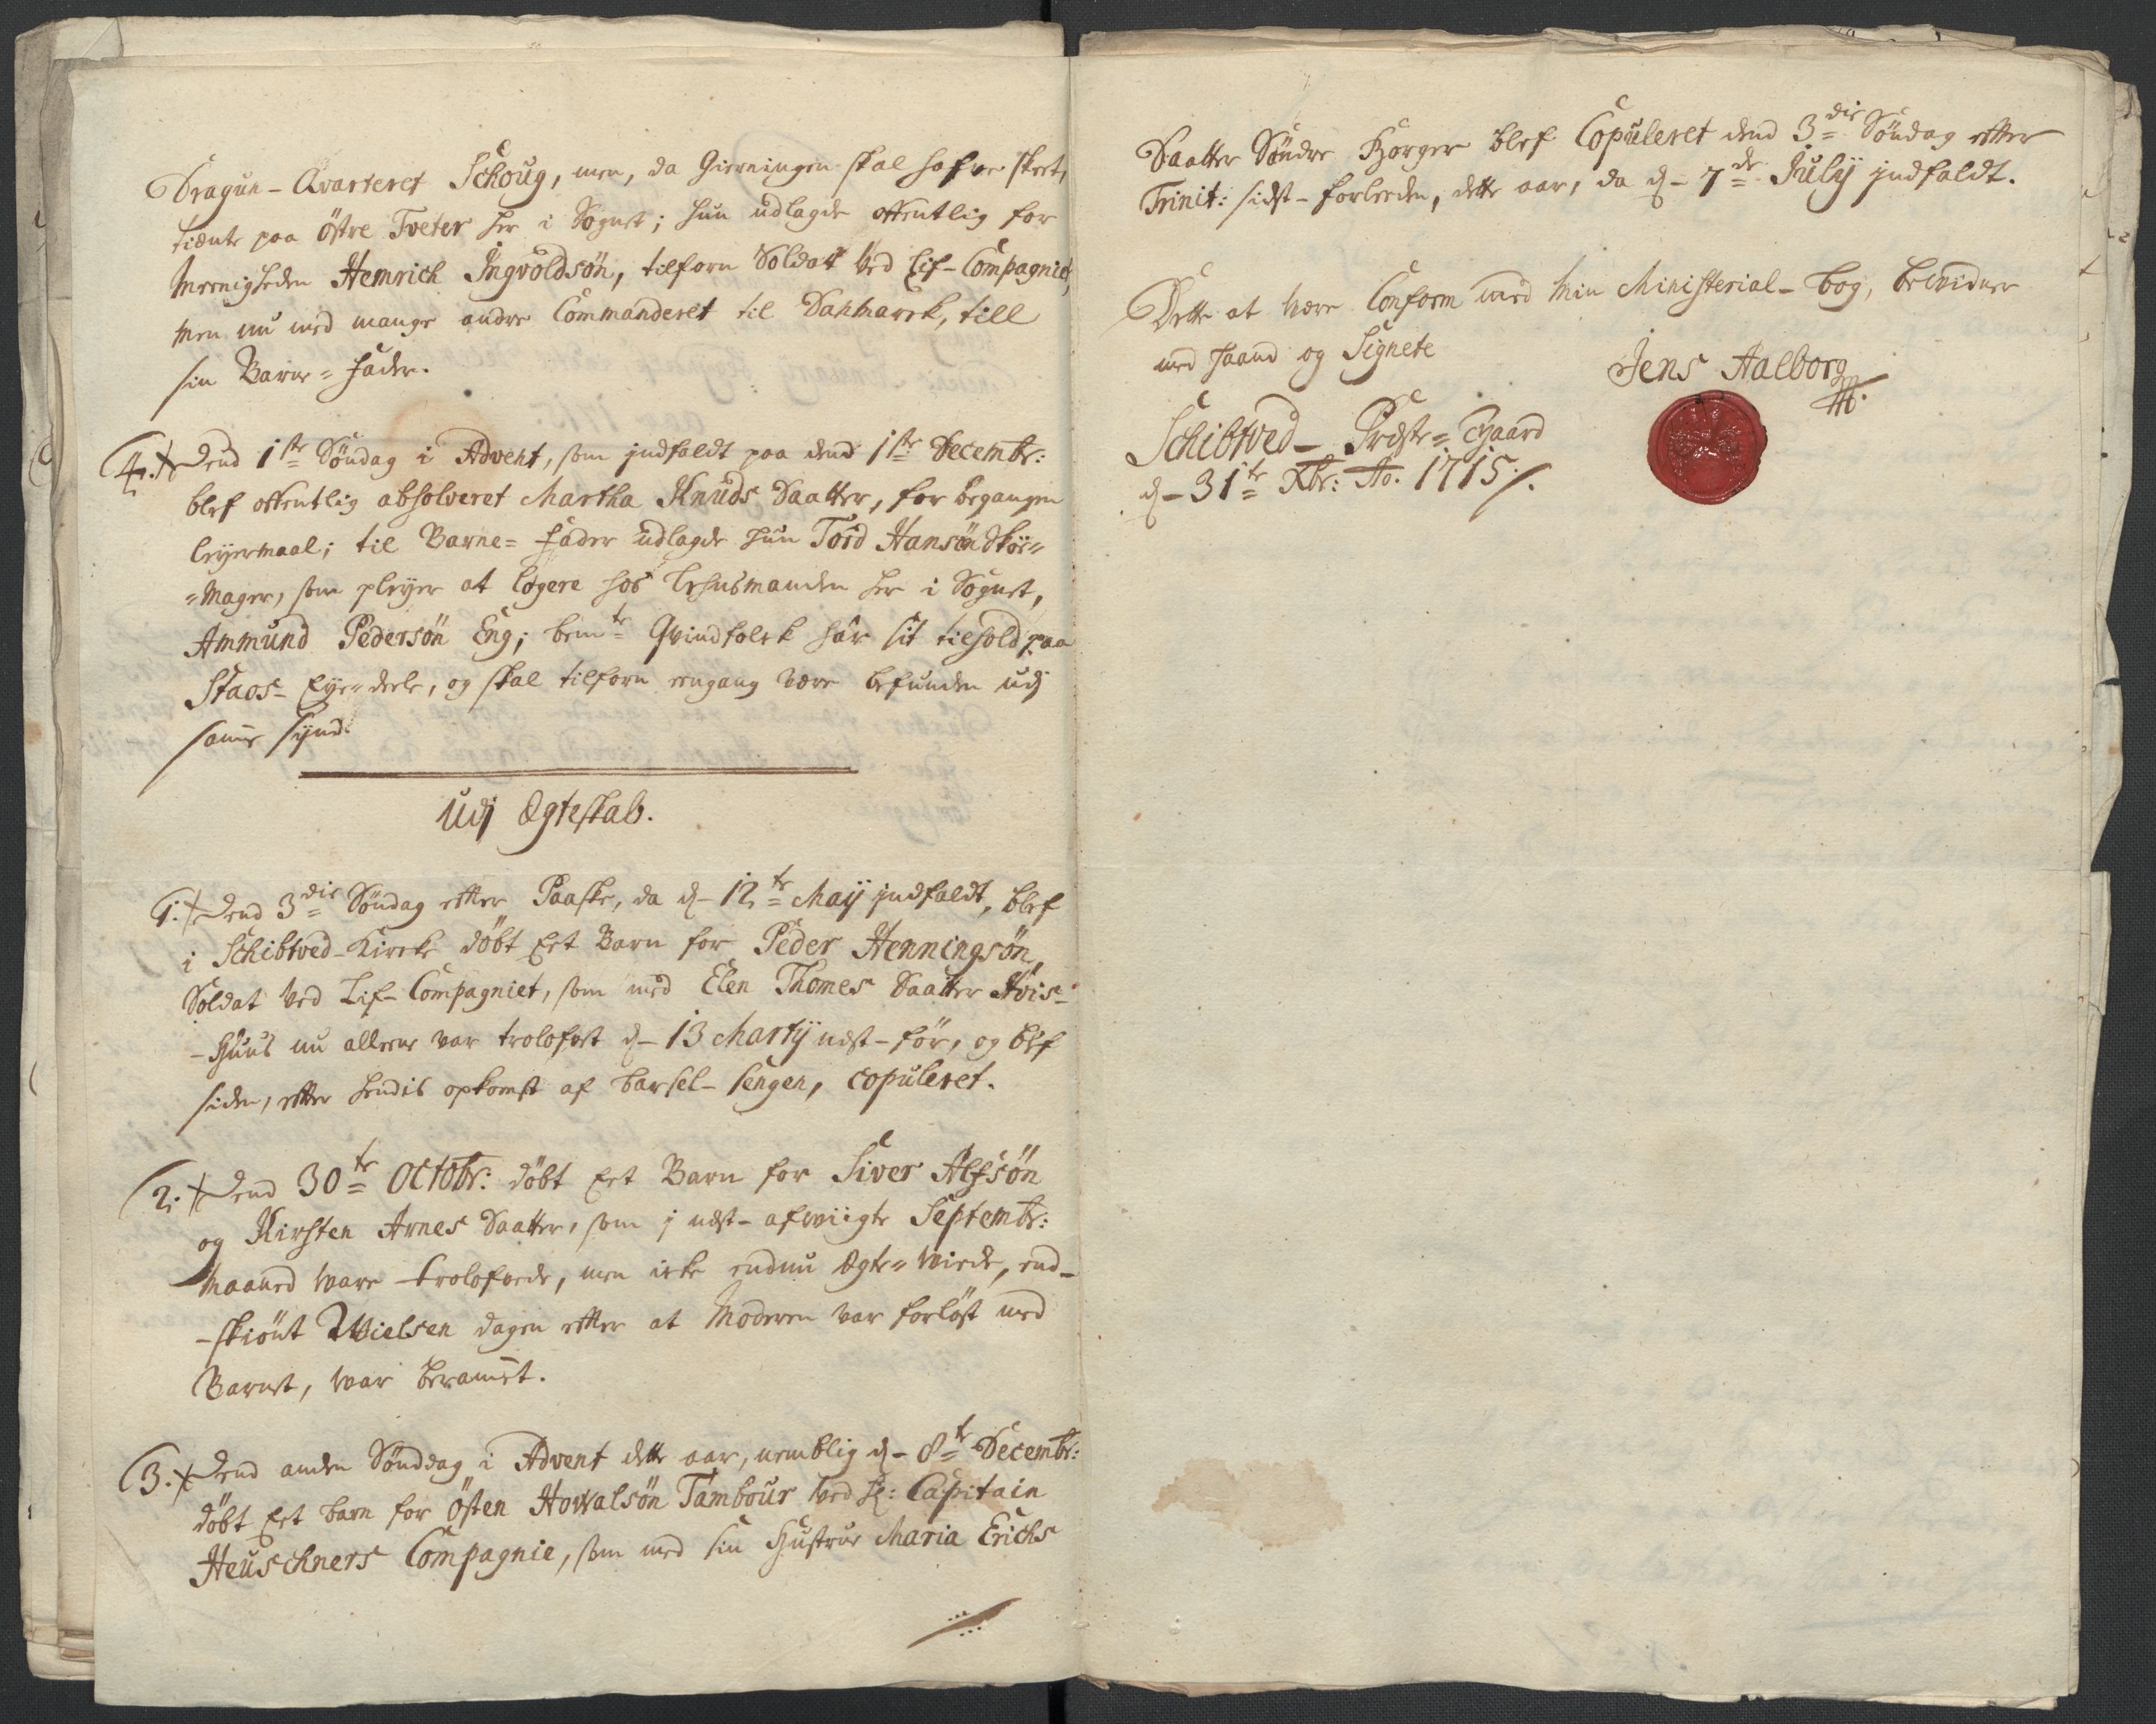 Dragun-Qvarteret Schoug, men, da Gierningen skal hafve skeet,
tiente paa Östre Tveter her i Sognet; hun udlagde offentlig for
Meenigheden Hemrich Ingvoldsøn, tilforn Soldat ved Lif-Compagniet,
men nu med mange andre Commanderet til Danmarck, till
sin Barne=fader.
4. Dend 1ste Söndag i Advent, som indfaldt paa dend 1ste Decembr:
blef offentlig absolveret Martha Knuds Daatter, for begangen
leyermaal; til Barne=fader udlagde hun Tord Hansøn Skoe=
=mager, som pleyer at logere hos lehnsmanden her i Sognet,
Ammund Pedersøn Eng; bemte Qvindfolck har sit tilhold paa
Staos-Eye=deele, og skal tilforn eengang være befunden udj
samme synd.
Udj Ægteskab.
1. Dend 3die Söndag efter Paaske, da d- 12te Maij indfaldt, blef
i Schibtved-Kircke döbt Eet Barn for Peder Henningsøn,
Soldat ved Lif-Compagniet, som med Elen Thomes Daatter Hvis-
-huus nu alleene var trolofvet d- 13 Martij næst-för, og blef
siden, efter hendis opkomst af barsel-sengen, copuleret.
2. Dend 30te Octobr: döbt Eet Barn for Siver Alfsøn
og Kirsten Arnes Daatter, som j næst-afviigte Septembr:
Maaned ware trolofvede, men icke endnu Ægte=wiede, end-
-skiönt Wielsen dagen efter at Moderen var forlöst med
Barnet, war berammet.
3. Dend anden Sönddag i Advent dette aar, nemblig d- 8te Decembr:
döbt Eet barn for Östen Howalsøn Tambour ved Hr: Capitain
Heuschners Compagnie, som med sin Hustrue Maria Erichs
Daatter Söndre Horgen blef Copuleret dend 3die Söndag efter
Trinit: sidst-forleeden, dette aar, da d- 7de Julij indfaldt.
Dette at være Conform med min Ministerial-bog, bevidner
med haand og Signete
Jens Aalborg
Mp.
Schibtved-Præste=Gaard
d- 31te Xbr: Ao. 1715/.